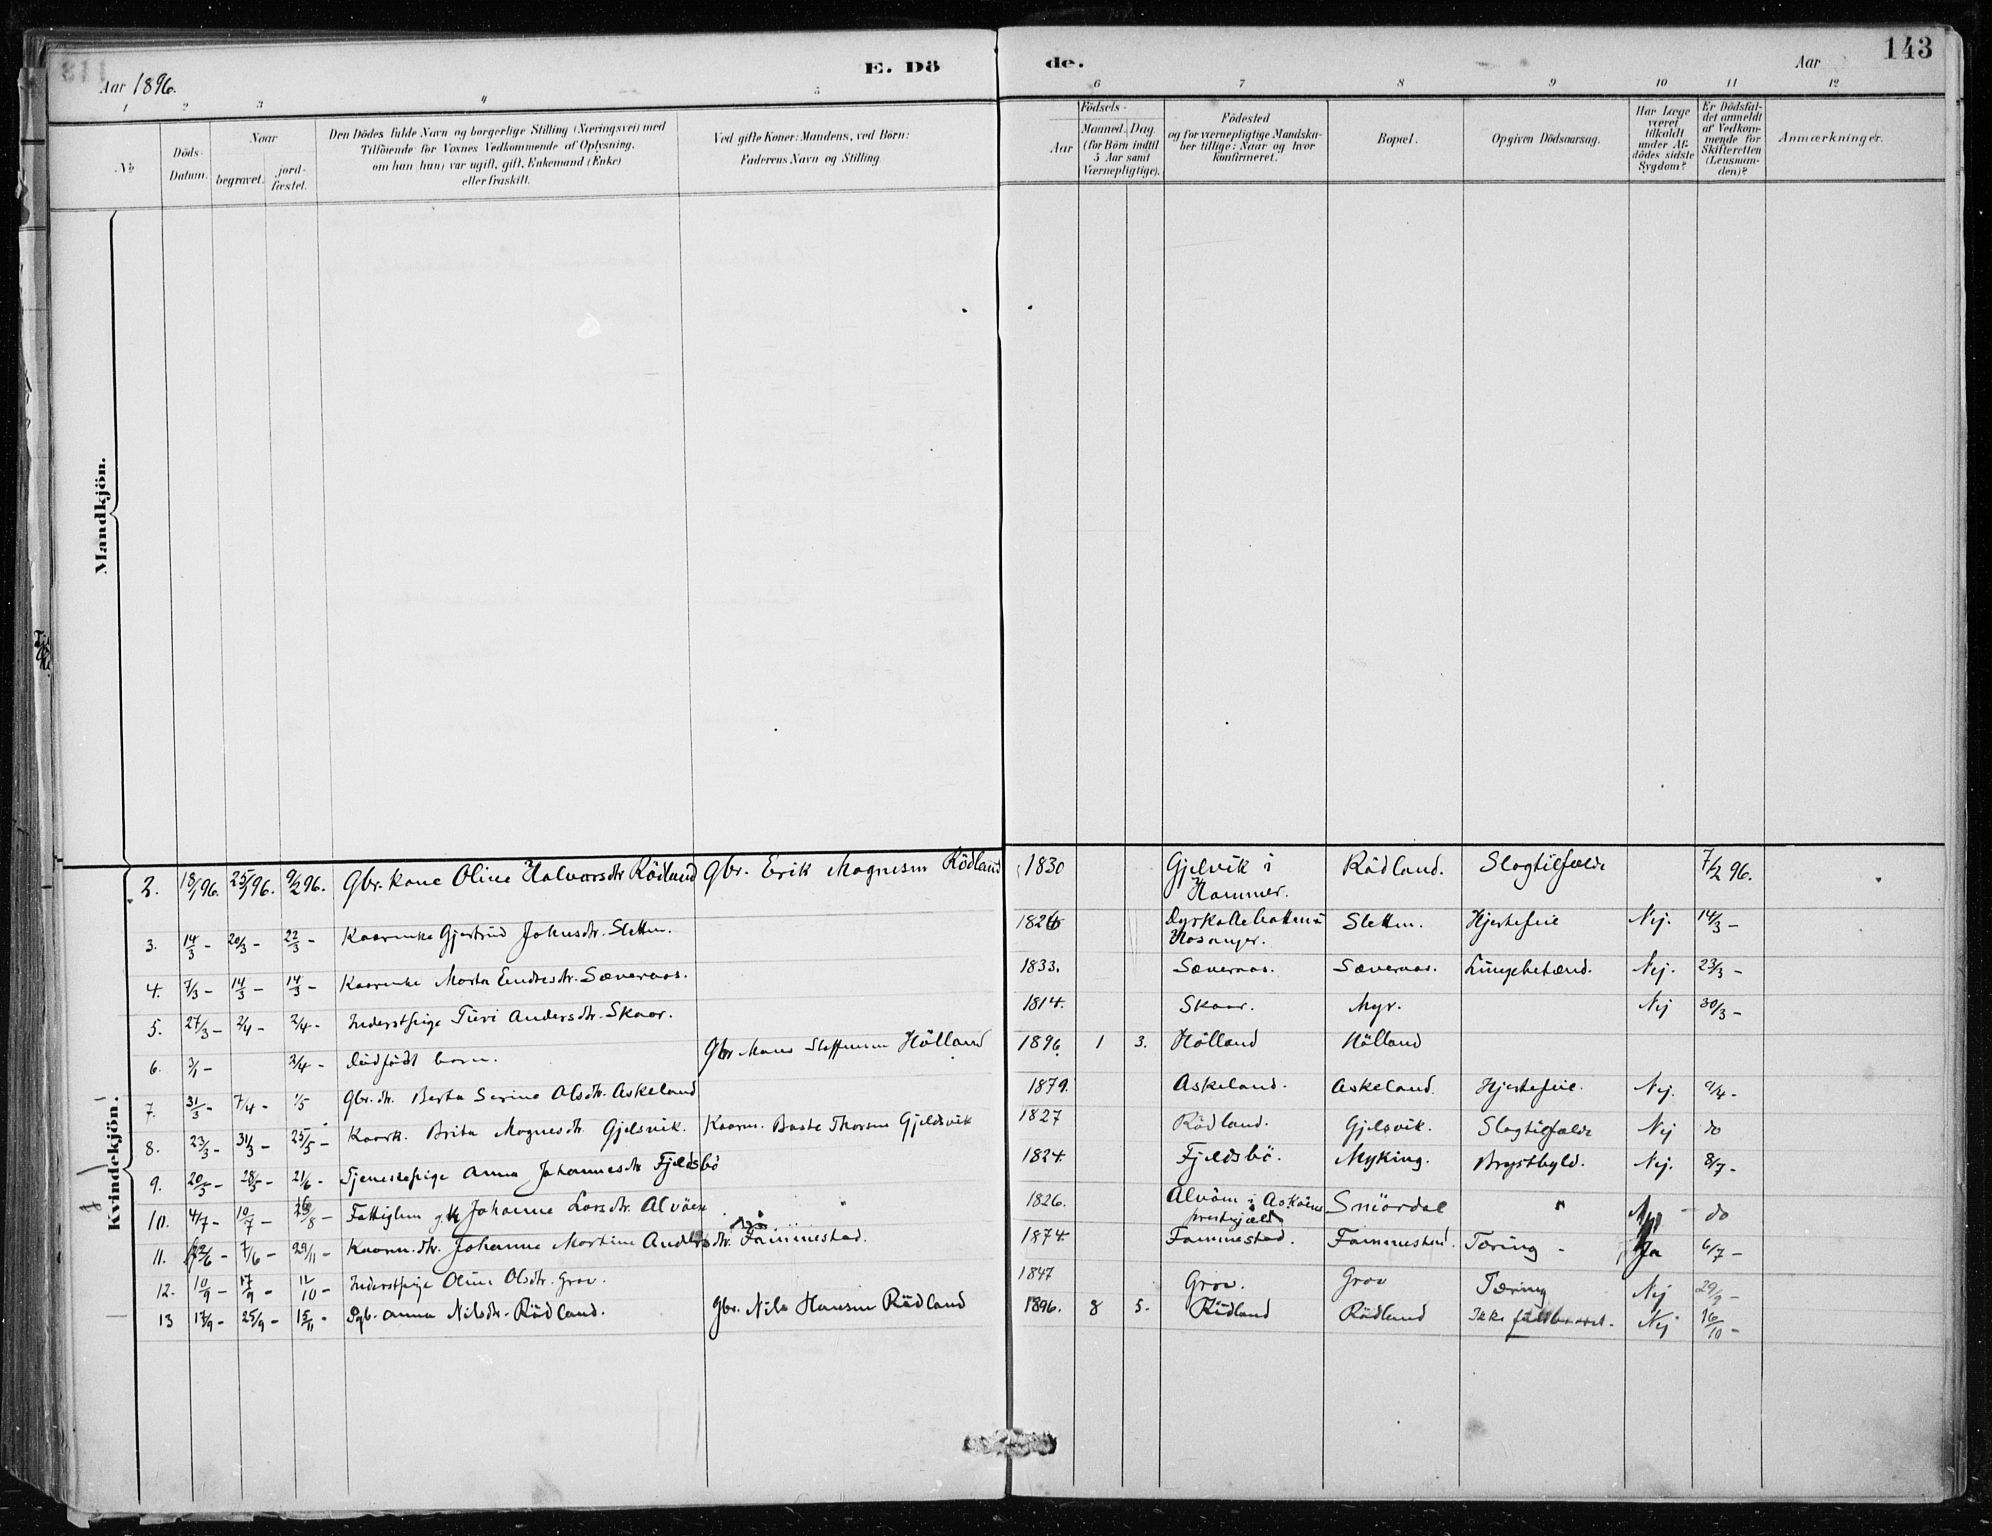 143
Aar 1896.
E. Dö
de.
Aar
1 2 3 4 5
6 7 8 9 10 11 12
No
Döds-
Datum.
Naar
begravet.
jord-
fæstet.
Den Dödes fulde Navn og borgerlige Stilling (Næringsvei) med
Tilföiende for Voxnes Vedkommende af Oplysning,
om han (hun) var ugift, gift, Enkemand (Enke)
eller fraskilt.
Ved gifte Koner: Mandens, ved Börn:
Faderens Navn og Stilling.
Födsels-
Aar
Maaned. Dag.
(for Börn indtil
5 Aar samt
Værnepligtige).
Födested
og for værnepligtige Mandska-
ber tillige: Naar og hvor
konfirmeret.
Bopæl.
Opgiven Dödsaarsag.
Har Læge
været
tilkaldt
under Af-
dödes sidste
Sygdom?
Er Dödsfal-
det anmeldt
af Vedkom-
mende for
Skifteretten
(Lensman-
den)?
Anmærkninger.
Mandkjön.
Kvindekjön.
2. 18/1 96. 25/1 96. 9/2 96. Gbr. kone Oline Halvorsdtr Rödland Gbr. Erik Magnesen Rödland 1830 Gjelvik i Hammer. Rödland. Slagtilfælde 7/2 96.
3. 14/3 - 20/3 - 22/3 - Kaarenke Gjertrud Johnsdtr. Sletten. 1826 Hosanger. Sletten. Hjertefeil Nej. 14/3 -
4. 7/3 - 14/3 - 14/3 - Kaarenke Marta Endresdtr. Sævernaas. 1833. Sævernaas. Sævernaas. Lungebetænd. Nej. 23/3 -
5. 27/3 - 2/4 - 2/4 - Inderstpige Turi Andersdtr. Skaar. 1814. Skaar. Myr. Nej 30/3 -
6. 3/1 - 2/4 - Dödfödt barn. Gbr Mons Steffensen Hölland 1896. 1 3. Hölland Hölland
7. 31/3 - 7/4 - 1/5 Gbr. dtr. Berta Serina Olsdtr. Askeland 1879. Askeland. Askeland. Hjertefeil. Nej. 9/4 -
8. 23/3 - 31/3 - 25/5 - Kaark. Brita Mognesdtr. Gjelsvik. Kaarm. Baste Thorsen Gjeldsvik 1827 Rödland. Gjelsvik. Slagtilfælde Nej do
9. 20/5 - 28/5 - 21/6 - Tjenestepige Anna Johannesdtr Fjeldsbö 1824. Fjeldsbö. Myking. Brystbyld. Nej. 8/7 -
10. 4/7 - 10/7 - 16/8 - Fattiglem Johanna Larsdtr. Alvöen 1826. Alvöen i Asköens prestegjæld Sniördal " Nej - do
11. 22/6 - 7/6 - 29/11 - Kaarm. dtr. Johanna Martine Andersdtr. Fammestad. 1874. Fammestad. Fammestad. Tæring - Ja 6/7 -
12. 10/9 - 17/9 - 12/10 - Inderstpige Oline Olsdtr. Grov. 1847 Grov. Grov Tæring Nej 29/9 -
13 17/9 - 25/9 - 15/11 - Pgb. Anna Nilsdtr. Rödland. Gbr. Nils Hansen Rödland 1896. 8 5. Rödland Rödland Ikke fuldbaaret. Nej 16/10 -